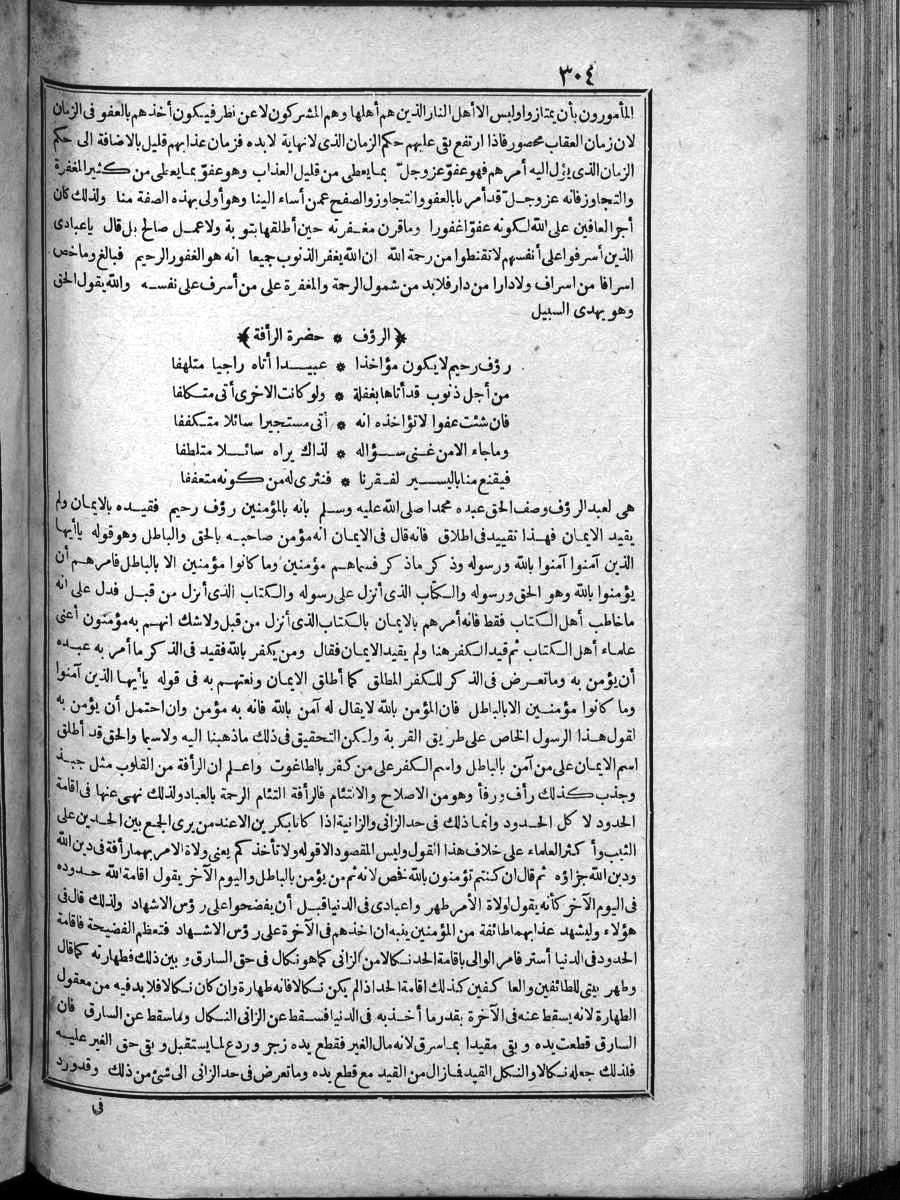 ٣٠٤
المأمورون بأن يمتازوا وليس الا أهل النار الذين هم أهلها وهم المشركون لا عن نظر فيكون أخذهم بالعفو فى الزمان
لان زمان العقاب محصور فاذا ارتفع بقى عليهم حكم الزمان الذى لا نهاية لابده فزمان عذابهم قليل بالاضافة الى حكم
الزمان الذى يؤل اليه أمرهم فهو عفوّ عز وجل بما يعطى من قليل العذاب وهو عفوّ بما يعطى من كثير المغفرة
والتجاوز فانه عز وجل قد أمرنا بالعفو والتجاوز والصفح عمن أساء الينا وهو أولى بهذه الصفة منا ولذلك كان
أجر العافين على الله لكونه عفوّا غفورا وما قرن مغفرته حين أطلقها بتوبة ولا عمل صالح بل قال ياعبادى
الذين أسرفوا على أنفسهم لا تقنطوا من رحمة الله ان الله يغفر الذنوب جميعا انه هو الغفور الرحيم فبالغ وما خص
اسرافا من اسراف ولا دارا من دار فلابد من شمول الرحمة والمغفرة على من أسرف على نفسه والله يقول الحق
وهو يهدى السبيل
﴿الرؤف * حضرة الرأفة﴾
رؤف رحيم لا يكون مؤاخذا * عبيدا أتاه راجيا متلهفا
من أجل ذنوب قد أتاها بغفلة * ولو كانت الاخرى أتى متكلفا
فان شئت عفوا لا تؤاخذه انه * أتى مستجيرا سائلا متكففا
وما جاء الا من غنى سؤاله * لذاك يراه سائلا متلطفا
فيقنع منا باليسير لفقرنا * فنثرى له من كونه متعففا
هى لعبد الرؤف وصف الحق عبده محمدا صلى الله عليه وسلم بانه بالمؤمنين رؤف رحيم فقيده بالايمان ولم
يقيد الايمان فهذا تقييد فى اطلاق فانه قال فى الايمان انه مؤمن صاحبه بالحق والباطل وهو قوله ياأيها
الذين آمنوا آمنوا بالله ورسوله وذكر ما ذكر فسماهم مؤمنين وما كانوا مؤمنين الا بالباطل فامرهم أن
يؤمنوا بالله وهو الحق ورسوله والكتاب الذى أنزل على رسوله والكتاب الذى أنزل من قبل فدل على انه
ما خاطب أهل الكتاب فقط فانه أمرهم بالايمان بالكتاب الذى أنزل من قبل ولا شك انهم به مؤمنون أعنى
علماء أهل الكتاب ثم قيد الكفر هنا ولم يقيد الايمان فقال ومن يكفر بالله فقيد فى الذكر ما أمر به عبده
أن يؤمن به وما تعرض فى الذكر للكفر المطلق كما أطلق الايمان ونعتهم به فى قوله ياأيها الذين آمنوا
وما كانوا مؤمنين الا بالباطل فان المؤمن بالله لا يقال له آمن بالله فانه به مؤمن وان احتمل أن يؤمن به
لقول هذا الرسول الخاص على طريق القربة ولكن التحقيق فى ذلك ما ذهبنا اليه ولاسيما والحق قد أطلق
اسم الايمان على من آمن بالباطل واسم الكفر على من كفر بالطاغوت واعلم ان الرأفة من القلوب مثل جبذ
وجذب كذلك رأف ورفأ وهو من الاصلاح والالتئام فالرأفة التئام الرحمة بالعباد ولذلك نهى عنها فى اقامة
الحدود لا كل الحدود وانما ذلك فى حد الزانى والزانية اذا كانا بكرين الا عند من يرى الجمع بين الحدين على
الثيب وأكثر العلماء على خلاف هذا القول وليس المقصود الا قوله ولا تأخذكم يعنى ولاة الامر بهما رأفة فى دين الله
ودين الله جزاؤه ثم قال ان كنتم تؤمنون بالله فخص لانه ثم من يؤمن بالباطل واليوم الآخر يقول اقامة الله حدوده
فى اليوم الآخر كأنه يقول لولاة الأمر طهروا عبادى فى الدنيا قبل أن يفضحوا على رؤس الاشهاد ولذلك قال فى
هؤلاء وليشهد عذابهما طائفة من المؤمنين ينبه ان أخذهم فى الآخرة على رؤس الاشهاد فتعظم الفضيحة فاقامة
الحدود فى الدنيا أستر فامر الوالى باقامة الحد نكالا من الزانى كما هو نكال فى حق السارق وبين ذلك فطهارته كما قال
وطهر بيتى للطائفين والعاكفين كذلك اقامة الحد اذا لم يكن نكالا فانه طهارة وان كان نكالا فلابد فيه من معقول
الطهارة لانه يسقط عنه فى الآخرة بقدر ما أخذ به فى الدنيا فسقط عن الزانى النكال وما سقط عن السارق فان
السارق قطعت يده وبقى مقيدا بما سرق لانه مال الغير فقطع يده زجر وردع لما يستقبل وبقى حق الغير عليه
فلذلك جعله نكالا والنكل القيد فما زال من القيد مع قطع يده وما تعرض فى حد الزانى الى شئ من ذلك وقد ورد
فى